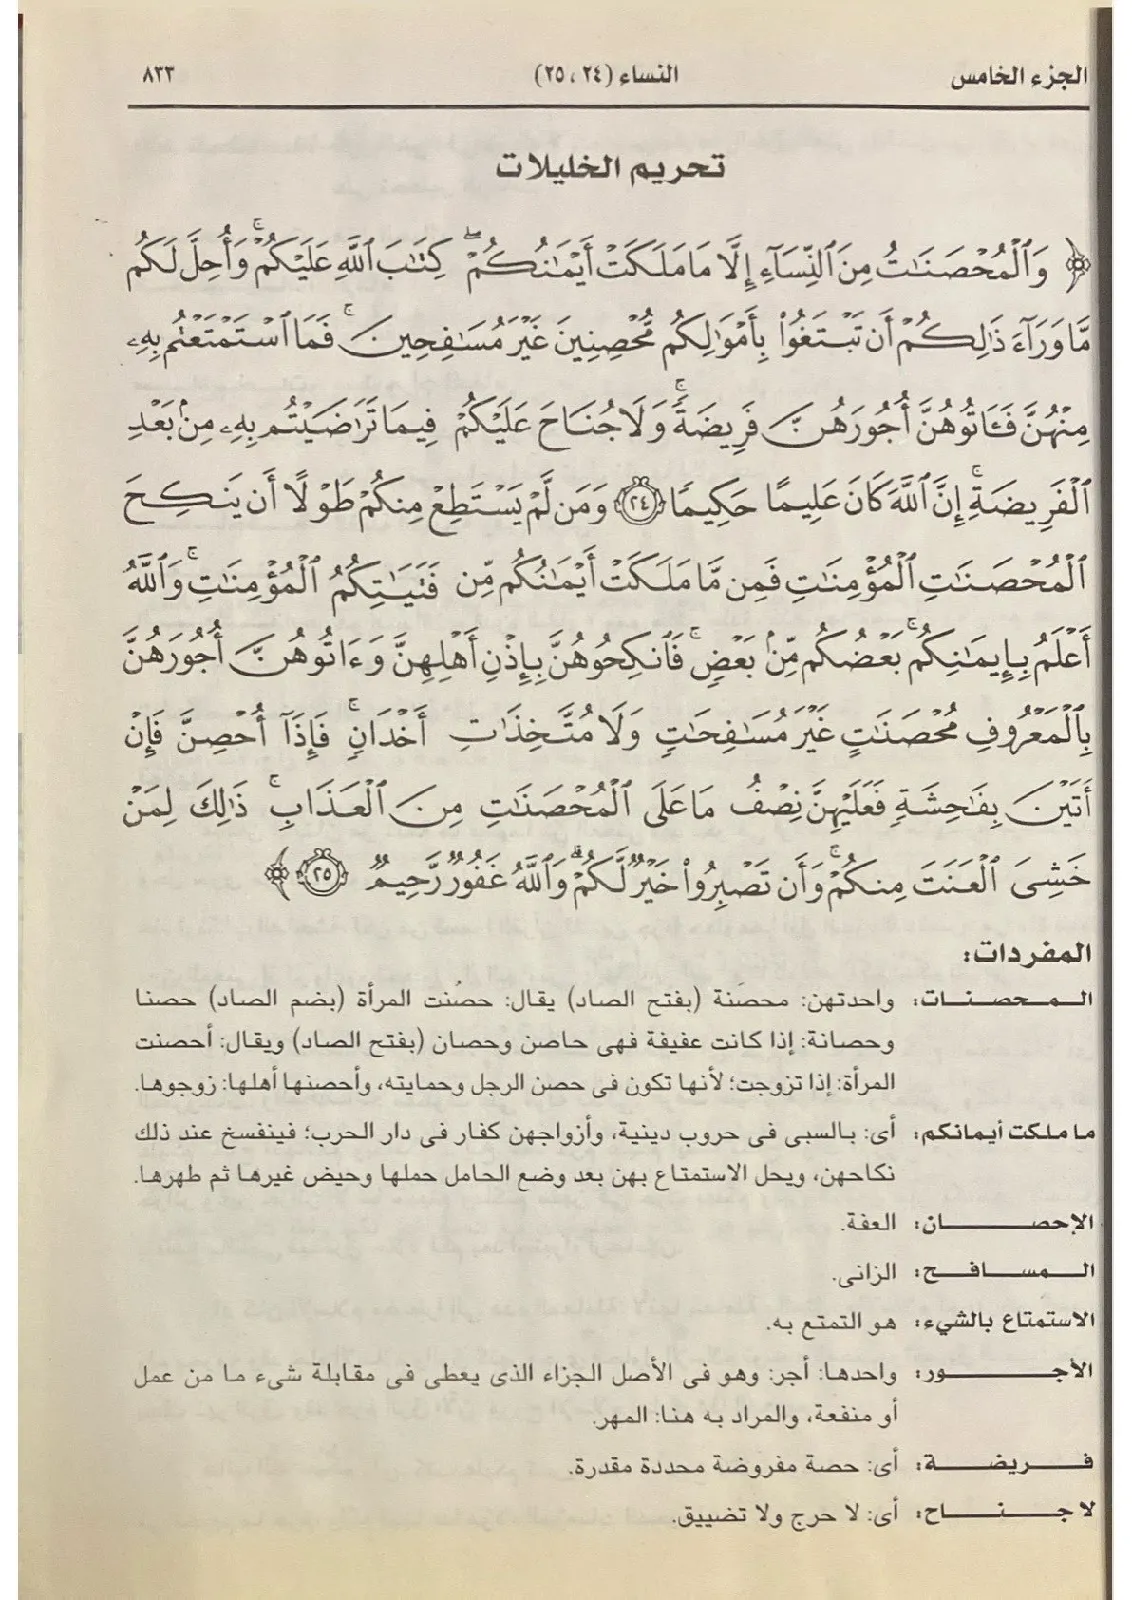 الجزء الخامس
النساء (٢٤ ، ٢٥)
٨٢٣
تحريم الخليلات
﴿ وَٱلْمُحْصَنَٰتُ مِنَ ٱلنِّسَآءِ إِلَّا مَا مَلَكَتْ أَيْمَٰنُكُمْ ۖ كِتَٰبَ ٱللَّهِ عَلَيْكُمْ ۚ وَأُحِلَّ لَكُم
مَّا وَرَآءَ ذَٰلِكُمْ أَن تَبْتَغُوا۟ بِأَمْوَٰلِكُم مُّحْصِنِينَ غَيْرَ مُسَٰفِحِينَ ۚ فَمَا ٱسْتَمْتَعْتُم بِهِۦ
مِنْهُنَّ فَـَٔاتُوهُنَّ أُجُورَهُنَّ فَرِيضَةً ۚ وَلَا جُنَاحَ عَلَيْكُمْ فِيمَا تَرَٰضَيْتُم بِهِۦ مِنۢ بَعْدِ
ٱلْفَرِيضَةِ ۚ إِنَّ ٱللَّهَ كَانَ عَلِيمًا حَكِيمًا ﴿٢٤﴾ وَمَن لَّمْ يَسْتَطِعْ مِنكُمْ طَوْلًا أَن يَنكِحَ
ٱلْمُحْصَنَٰتِ ٱلْمُؤْمِنَٰتِ فَمِن مَّا مَلَكَتْ أَيْمَٰنُكُم مِّن فَتَيَٰتِكُمُ ٱلْمُؤْمِنَٰتِ ۚ وَٱللَّهُ
أَعْلَمُ بِإِيمَٰنِكُم ۚ بَعْضُكُم مِّنۢ بَعْضٍ ۚ فَٱنكِحُوهُنَّ بِإِذْنِ أَهْلِهِنَّ وَءَاتُوهُنَّ أُجُورَهُنَّ
بِٱلْمَعْرُوفِ مُحْصَنَٰتٍ غَيْرَ مُسَٰفِحَٰتٍ وَلَا مُتَّخِذَٰتِ أَخْدَانٍ ۚ فَإِذَآ أُحْصِنَّ فَإِنْ
أَتَيْنَ بِفَٰحِشَةٍ فَعَلَيْهِنَّ نِصْفُ مَا عَلَى ٱلْمُحْصَنَٰتِ مِنَ ٱلْعَذَابِ ۚ ذَٰلِكَ لِمَنْ
خَشِىَ ٱلْعَنَتَ مِنكُمْ ۚ وَأَن تَصْبِرُوا۟ خَيْرٌ لَّكُمْ ۗ وَٱللَّهُ غَفُورٌ رَّحِيمٌ ﴿٢٥﴾ ﴾
المفردات:
المحصنات: واحدتهن: محصَنة (بفتح الصاد) يقال: حصُنت المرأة (بضم الصاد) حصنا
وحصانة: إذا كانت عفيفة فهى حاصن وحصان (بفتح الصاد) ويقال: أحصنت
المرأة: إذا تزوجت؛ لأنها تكون فى حصن الرجل وحمايته، وأحصنها أهلها: زوجوها.
ما ملكت أيمانكم: أى: بالسبى فى حروب دينية، وأزواجهن كفار فى دار الحرب؛ فينفسخ عند ذلك
نكاحهن، ويحل الاستمتاع بهن بعد وضع الحامل حملها وحيض غيرها ثم طهرها.
الإحصان: العفة.
المسافح: الزانى.
الاستمتاع بالشيء: هو التمتع به.
الأجور: واحدها: أجر: وهو فى الأصل الجزاء الذى يعطى فى مقابلة شىء ما من عمل
أو منفعة، والمراد به هنا: المهر.
فريضة: أى: حصة مفروضة محددة مقدرة.
لا جناح: أى: لا حرج ولا تضييق.